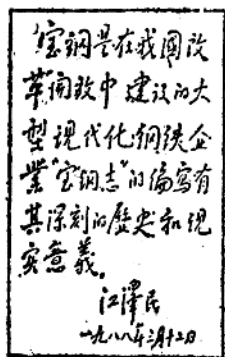 宝钢是在我國改
革開放中建设的大
型现代化钢铁企
業“宝钢志”的编写有
其深刻的歷史和现
实意義。
江澤民
一九八八年三月十二日